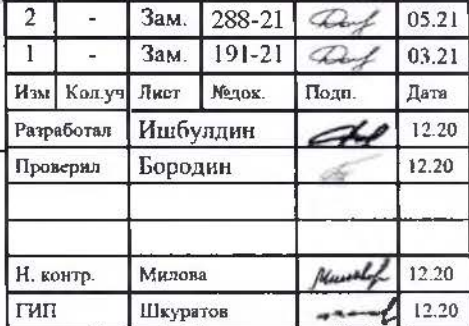 2 - Зам. 288-21 05.21
1 - Зам. 191-21 03.21
Изм Кол.уч Лист №док. Подп. Дата
Разработал Ишбулдин 12.20
Проверил Бородин 12.20
Н. контр. Милова 12.20
ГИП Шкуратов 12.20